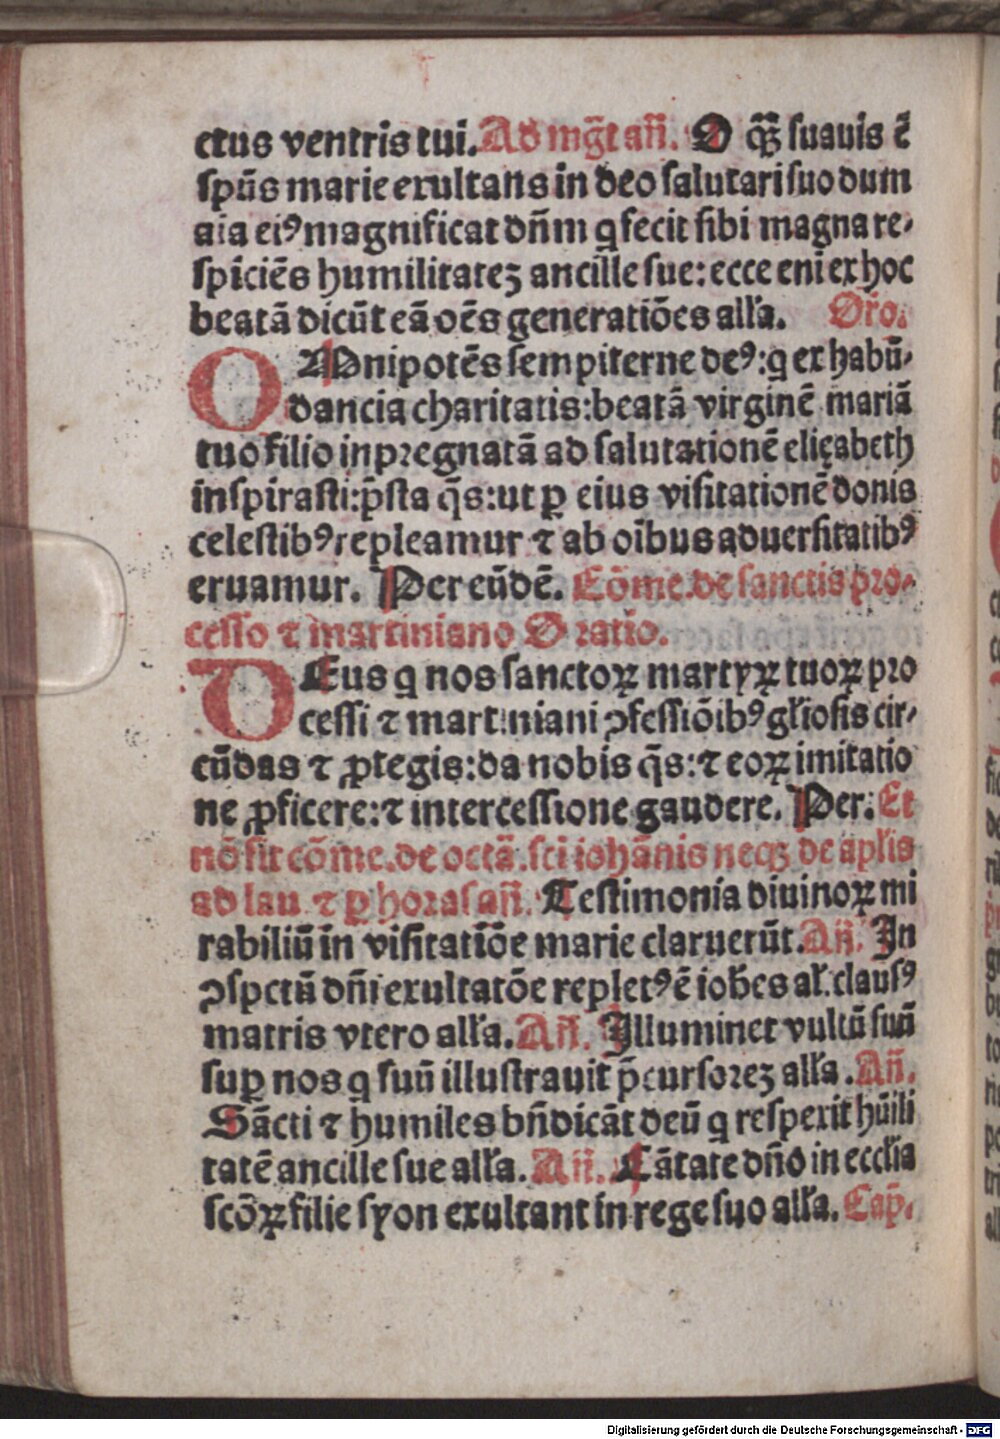 ctus ventris tui. Ad mg̃t an̄. O q̃ꝫ suauis ē
spūs marie exultans in deo salutari suo dum
aīa eiꝰ magnificat dn̄m q fecit sibi magna re⸗
spiciēs humilitateꝫ ancille sue: ecce eni ex hoc
beatā dicūt eā oēs generatiōes alľa. Or̄o.
OMnipotēs sempiterne deꝰ: q ex habū⸗
dancia charitatis: beatā virginē mariā
tuo filio inpregnatā ad salutationē eliçabeth
inspirasti: p̄sta q̄s: ut ꝑ eius visitationē donis
celestibꝰ repleamur ⁊ ab oībus aduersitatibꝰ
eruamur. Per eūdē. Cōme. de sanctis pro⸗
cesso ⁊ martiniano Oratio.
DEus q nos sanctoꝝ martyꝝ tuoꝝ pro
cessi ⁊ martiniani ꝯfessiōibꝰ gľiosis cir⸗
cūdas ⁊ ꝓtegis: da nobis q̄s: ⁊ eoꝝ imitatio
ne ꝓficere: ⁊ intercessione gaudere. Per. Et
nō fit cōme. de octā. sci iohānis neqꝫ de apľis
ad lau. ⁊ ꝑ horas an̄. Testimonia diuinoꝝ mi
rabiliū in visitatiōe marie claruerūt. An̄. In
ꝯspctū dn̄i exultatōe repletꝰ ē iohēs aľ. clausꝰ
matris vtero alľa. An̄. Illuminet vultū suū
suꝑ nos q suū illustrauit p̄cursoreꝫ alľa. An̄.
Sācti ⁊ humiles bn̄dicāt deū q respexit hūili
tatē ancille sue alľa. An̄. Cātate dn̄o in eccľia
scōꝝ filie syon exultant in rege suo alľa. Cap̄.
Digitalisierung gefördert durch die Deutsche Forschungsgemeinschaft - DFG